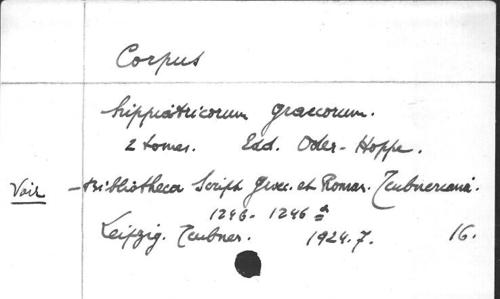 Corpus
hippiatricorum graecorum.
2 tomes. Edd. Oder-Hoppe.
Voir - Bibliotheca Script. Graec. et Roman. Teubneriana.
1246- 1246 a
Leipzig. Teubner. 1924.7. 16.